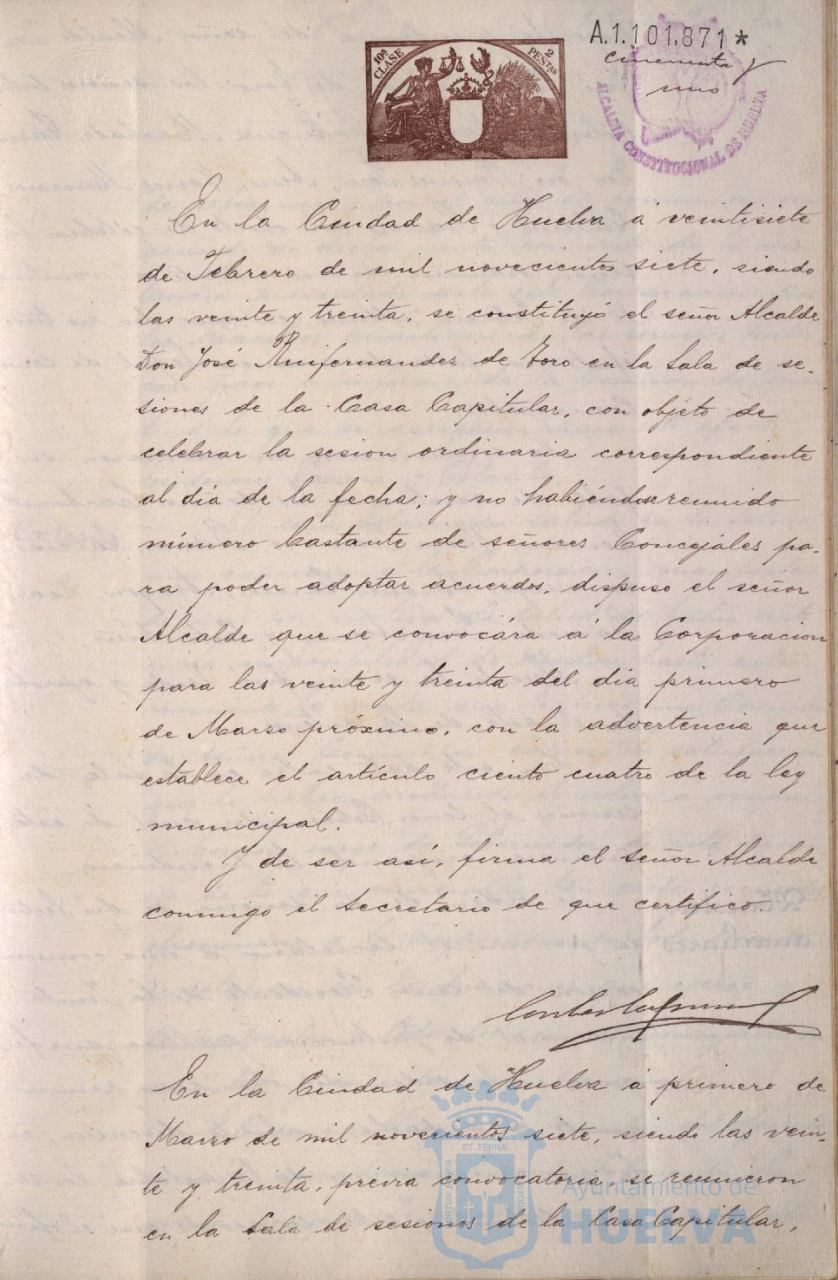 10ª CLASE
2 PESTAS
A.1.101.871*
cincuenta y
uno
ALCALDIA CONSTITUCIONAL DE HUELVA
En la Ciudad de Huelva á veintisiete
de Febrero de mil novecientos siete, siendo
las veinte y treinta, se constituyó el señor Alcalde
Don José Ruifernandez de Toro en la Sala de se-
siones de la Casa Capitular, con objeto de
celebrar la sesion ordinaria correspondiente
al día de la fecha; y no habiéndose reunido
número bastante de señores Concejales pa-
ra poder adoptar acuerdos, dispuso el señor
Alcalde que se convocára á la Corporacion
para las veinte y treinta del día primero
de Marzo próximo, con la advertencia que
establece el artículo ciento cuatro de la ley
municipal.
Y de ser así, firma el señor Alcalde
conmigo el Secretario de que certifico.
En la Ciudad de Huelva á primero de
Marzo de mil novecientos siete, siendo las vein-
te y treinta, prévia convocatoria, se reunieron
en la Sala de sesiones de la Casa Capitular,
ET TERRA
Ayuntamiento de
HUELVA